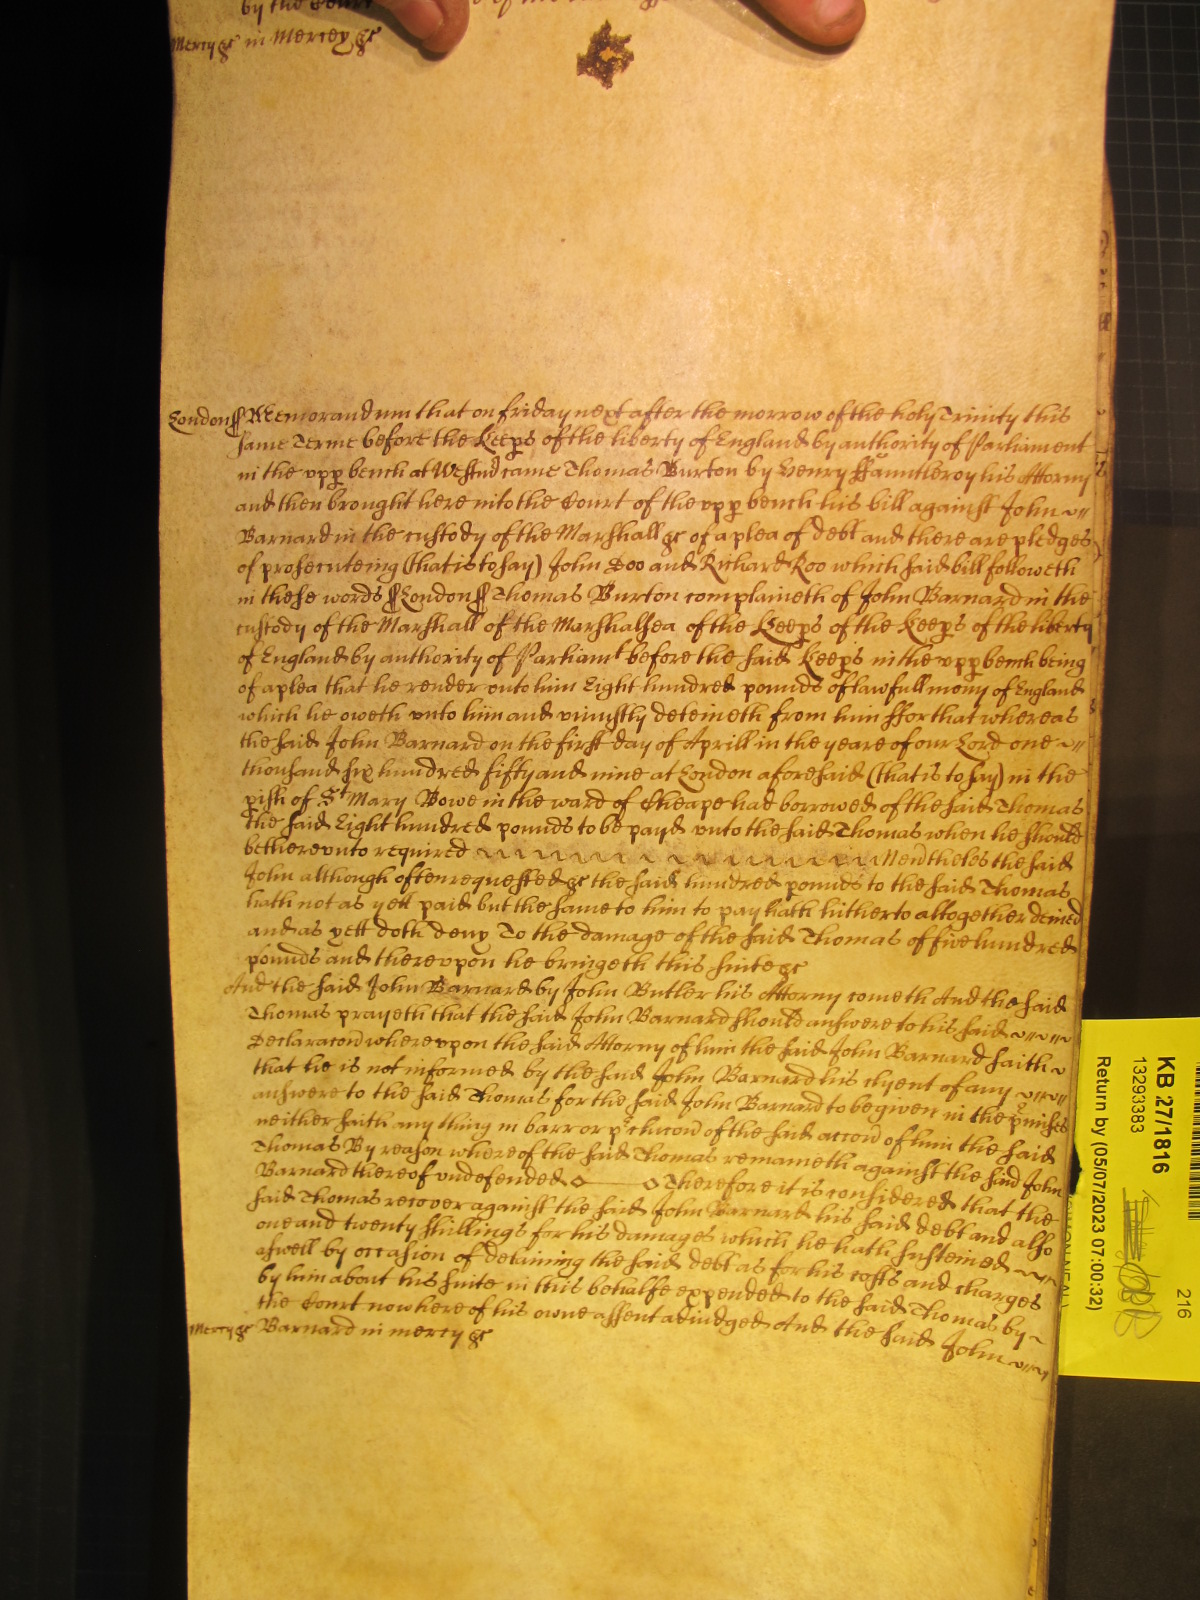 by the Court
Mercy &c in Mercey &c
London ss Memorandum that on friday next after the morrow of the holy Trinity this
same Terme before the Keeps of the liberty of England by authority of Parliament
in the upp bench at Westmr came Thomas Burton by Henry Ffauntleroy his Attorny
and then brought here into the Court of the upp bench his bill against John
Barnard in the custody of the Marshall &c of a plea of debt and there are pledges
of prosecuteing (that is to say) John Doo and Richard Roo which said bill followeth
in these words ss London ss Thomas Burton complaineth of John Barnard in the
custody of the Marshall of the Marshalsea of the Keeps of the Keeps of the liberty
of England by authority of Parliamt before the said Keeps in the upp bench being
of a plea that he render unto him Eight hundred pounds of lawfull mony of England
which he oweth unto him and uniustly deteineth from him ffor that whereas
the said John Barnard on the first day of Aprill in the yeare of our Lord one
thousand six hundred fifty and nine at London aforesaid (that is to say) in the
pish of St Mary Bowe in the ward of Cheape had borrowed of the said Thomas
the said Eight hundred pounds to be payd unto the said Thomas when he should
bethereunto required Nevertheles the said
John although often requested &c the said hundred pounds to the said Thomas
hath not as yett paid but the same to him to pay hath hitherto altogether denied
and as yett doth deny To the damage of the said Thomas of five hundred
pounds and thereupon he bringeth this suite &c
And the said John Barnard by John Butler his Attorny cometh And the said
Thomas prayeth that the said John Barnard should answere to his said
Declaracon whereupon the said Attorny of him the said John Barnard saith
that he is not informed by the said John Barnard his clyent of any
answere to the said Thomas for the said John Barnard to be given in the pmisses
neither saith any thing in barr or pclucon of the said accon of him the said
Thomas By reason whereof the said Thomas remaineth against the said John
Barnard thereof undefended Therefore it is considered that the
said Thomas recover against the said John Barnard his said debt and also
one and twenty shillings for his damages which he hath susteined
aswell by occasion of detaining the said debt as for his costs and charges
by him about his suite in this behalfe expended to the said Thomas by
the Court now here of his owne assent adiudged And the said John
Mercy &c Barnard in mercy &c
KB 27/1816
13293383
Return by (05/07/2023 07:00:32)
216